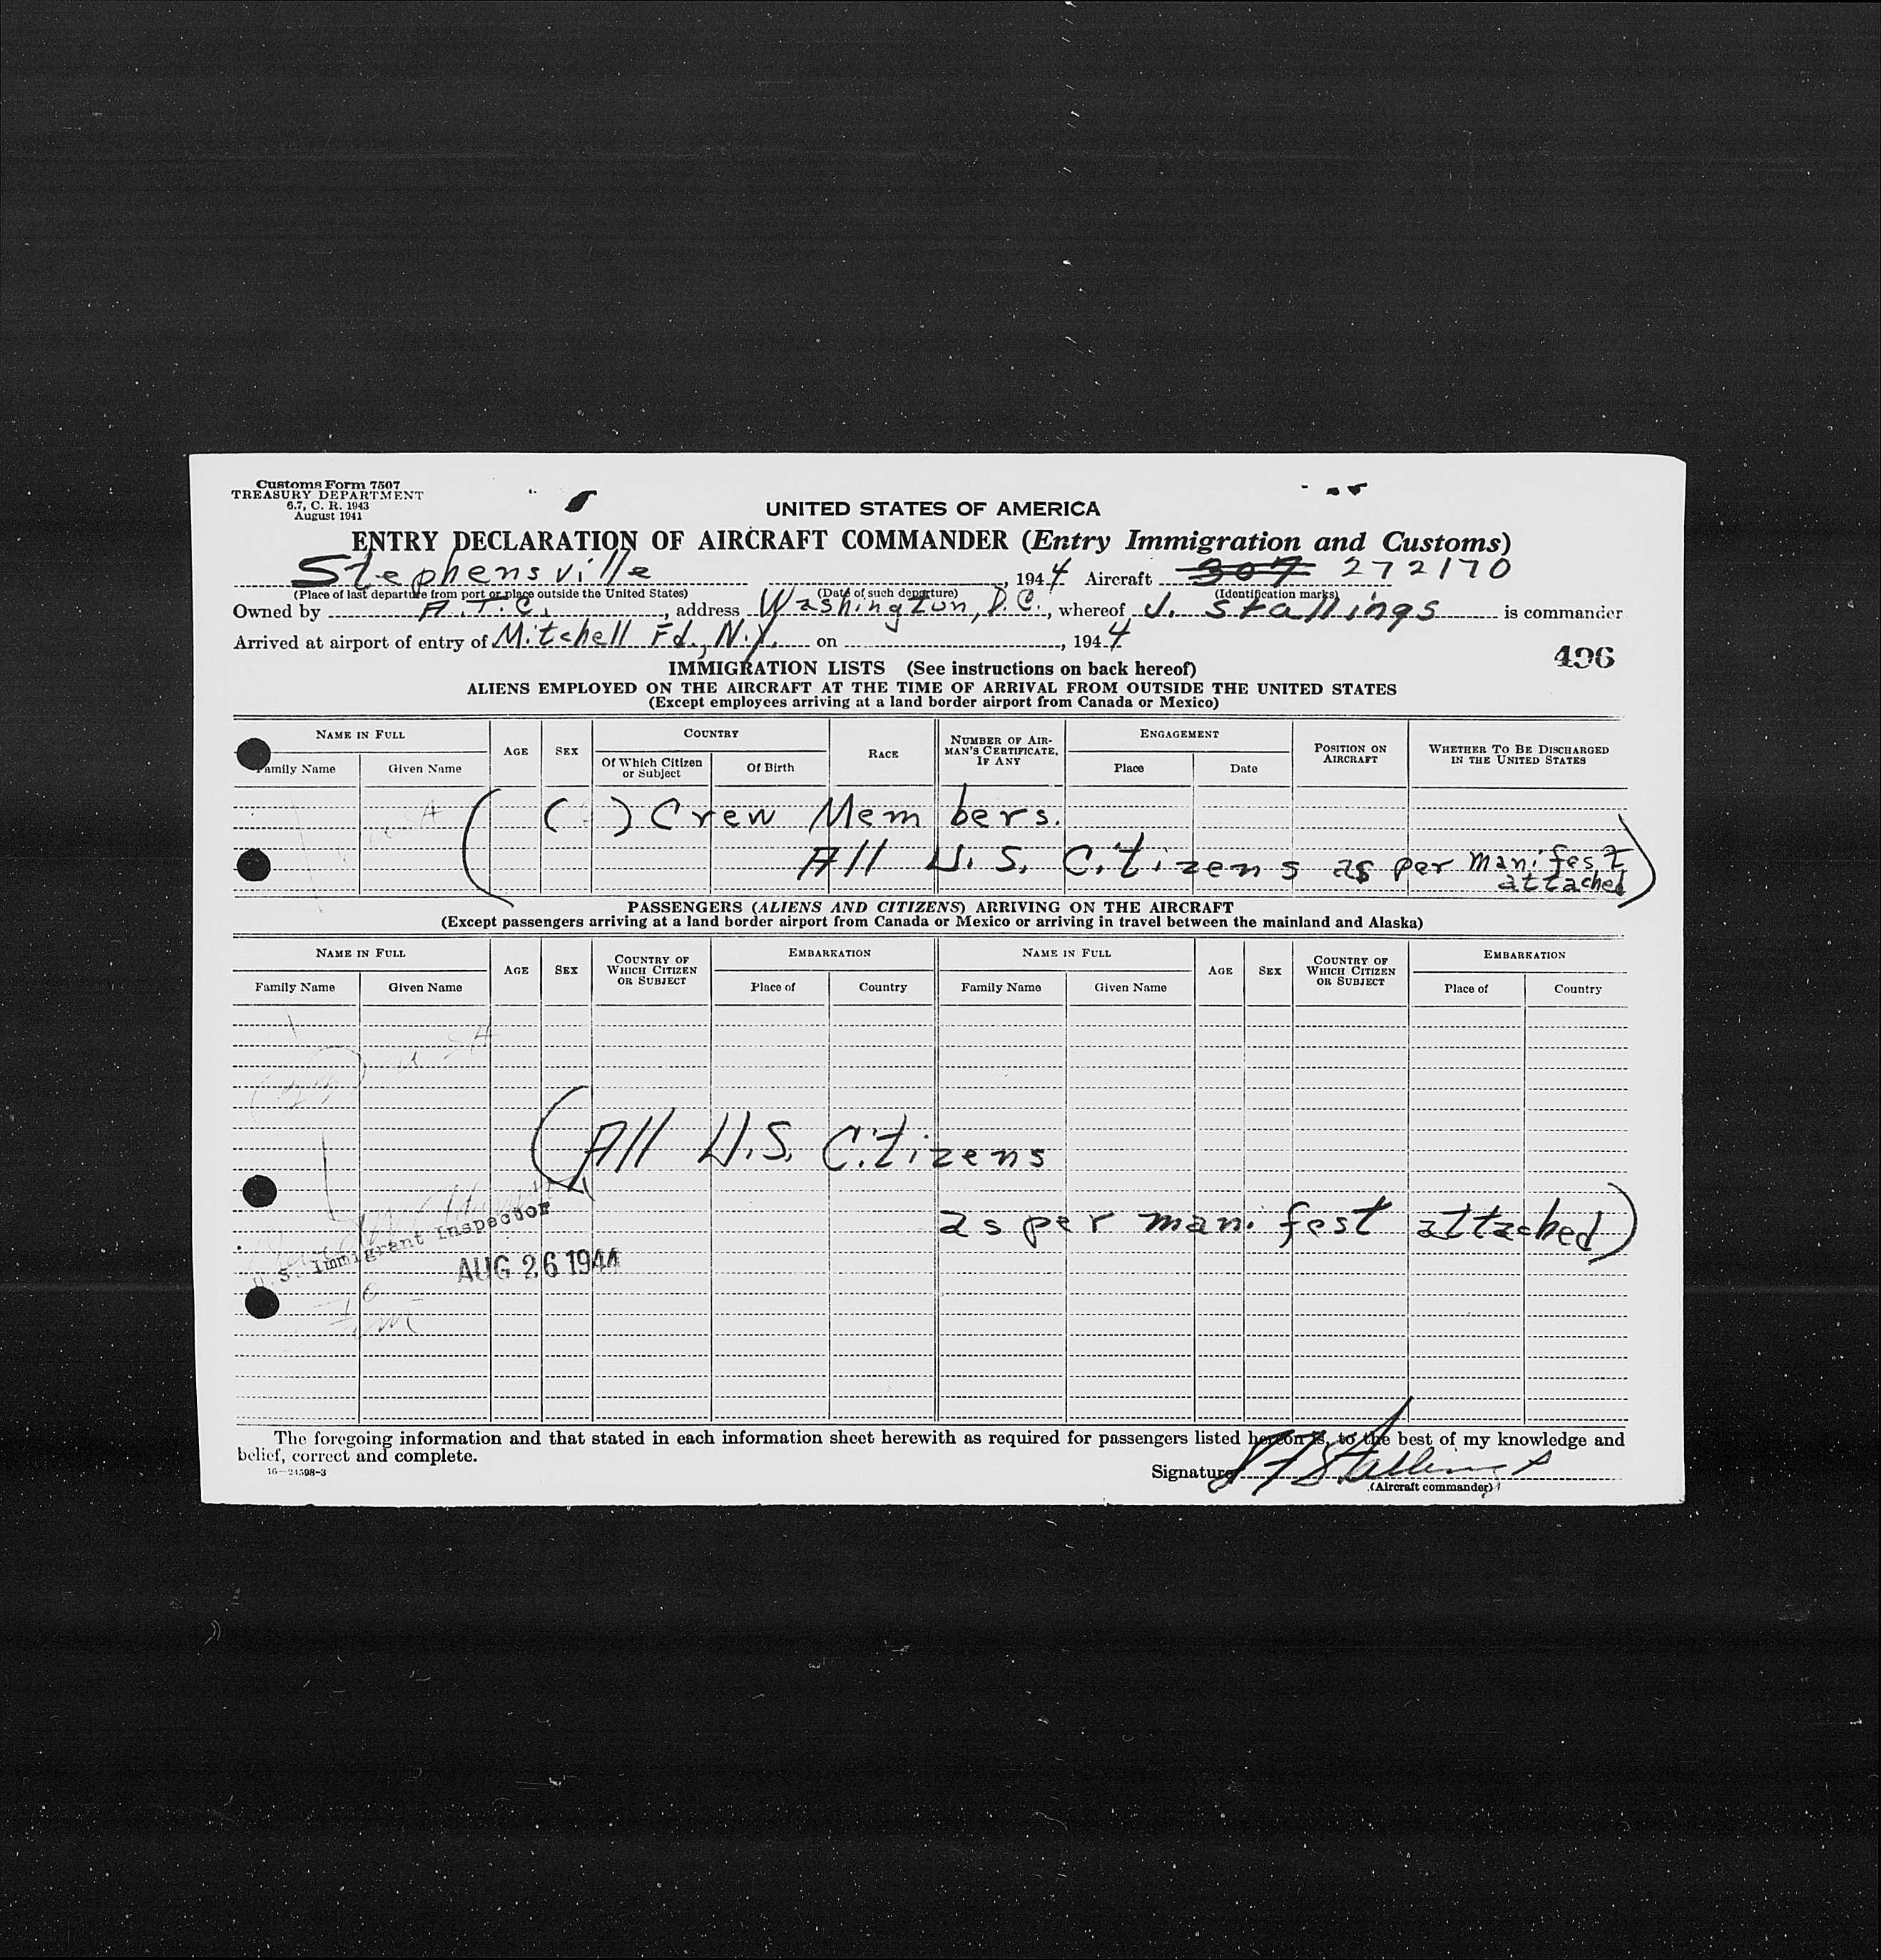 Customs Form 7507
TREASURY DEPARTMENT
6.7, C. R. 1943
August 1941
UNITED STATES OF AMERICA
ENTRY DECLARATION OF AIRCRAFT COMMANDER (Entry Immigration and Customs)
Stephensville , 1944 Aircraft 307 272170
(Place of last departure from port or place outside the United States) (Date of such departure) (Identification marks)
Owned by A.T.C. , address Washington, D.C. , whereof J. Stallings is commander
Arrived at airport of entry of Mitchell Fd., N.Y. on , 1944
496
IMMIGRATION LISTS (See instructions on back hereof)
ALIENS EMPLOYED ON THE AIRCRAFT AT THE TIME OF ARRIVAL FROM OUTSIDE THE UNITED STATES
(Except employees arriving at a land border airport from Canada or Mexico)
NAME IN FULL AGE SEX COUNTRY RACE NUMBER OF AIRMAN'S CERTIFICATE, IF ANY ENGAGEMENT POSITION ON AIRCRAFT WHETHER TO BE DISCHARGED IN THE UNITED STATES
Family Name Given Name Of Which Citizen or Subject Of Birth Place Date
( ( ) Crew Members.
All U.S. Citizens as per manifest
attached )
PASSENGERS (ALIENS AND CITIZENS) ARRIVING ON THE AIRCRAFT
(Except passengers arriving at a land border airport from Canada or Mexico or arriving in travel between the mainland and Alaska)
NAME IN FULL AGE SEX COUNTRY OF WHICH CITIZEN OR SUBJECT EMBARKATION NAME IN FULL AGE SEX COUNTRY OF WHICH CITIZEN OR SUBJECT EMBARKATION
Family Name Given Name Place of Country Family Name Given Name Place of Country
( All U.S. Citizens
as per manifest attached )
U.S. Immigrant Inspector
AUG 26 1944
The foregoing information and that stated in each information sheet herewith as required for passengers listed hereon is, to the best of my knowledge and
belief, correct and complete.
16—24598-3
Signature J Stallings
(Aircraft commander)